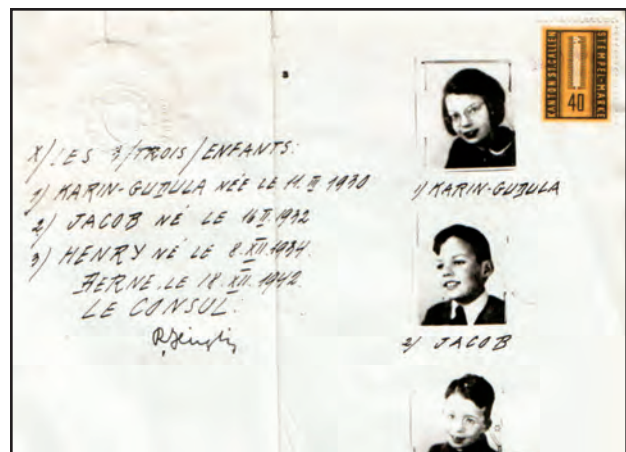 X/ LES 3/TROIS/ENFANTS:
1/ KARIN-GUDULA NÉE LE 11. III 1930
2/ JACOB NÉ LE 16 II. 1932
3/ HENRY NÉ LE 8. XII. 1934.
BERNE. LE 18. XII. 1942.
LE CONSUL:
1/ KARIN-GUDULA
2/ JACOB
KANTON ST. GALLEN
STEMPEL-MARKE
40